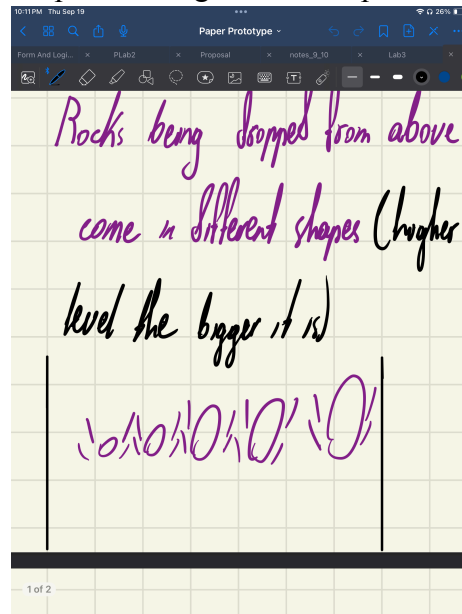 10:11PM Thu Sep 19
26%
Paper Prototype
Form And Logi...
PLab2
Proposal
notes_9_10
Lab3
Rocks being dropped from above
come in different shapes (higher
level the bigger it is)
1 of 2